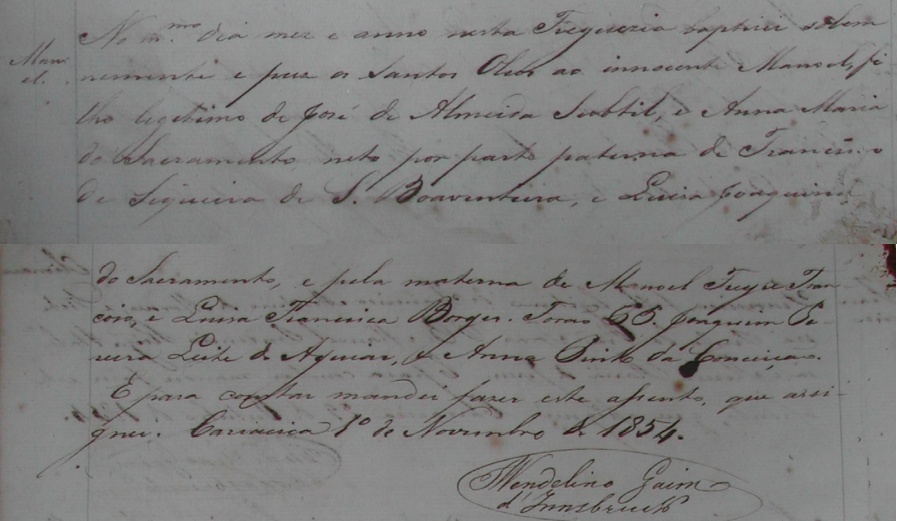 Mano
el.
No m.mo dia mez e anno nesta Freguezia baptizei solem
nemente e puz os Santos Oleos ao innocente Manoel, fi
lho legitimo de José de Almeida Subtil, e Anna Maria
do Sacramento, neto por parte paterna de Francisco
de Siqueira de S. Boaventura, e Luisa Joaquina
do Sacramento, e pela materna de Manoel Freire Fran
cisco, e Luisa Francisca Borges. Forão PP. Joaquim Pe
reira Leite de Aguiar, e Anna Pinto da Conceiçao.
E para constar mandei fazer este assento, que assi-
gnei. Cariacica 1º de Novembro de 1854.
Wendelino Gaim
d'Innsbruck